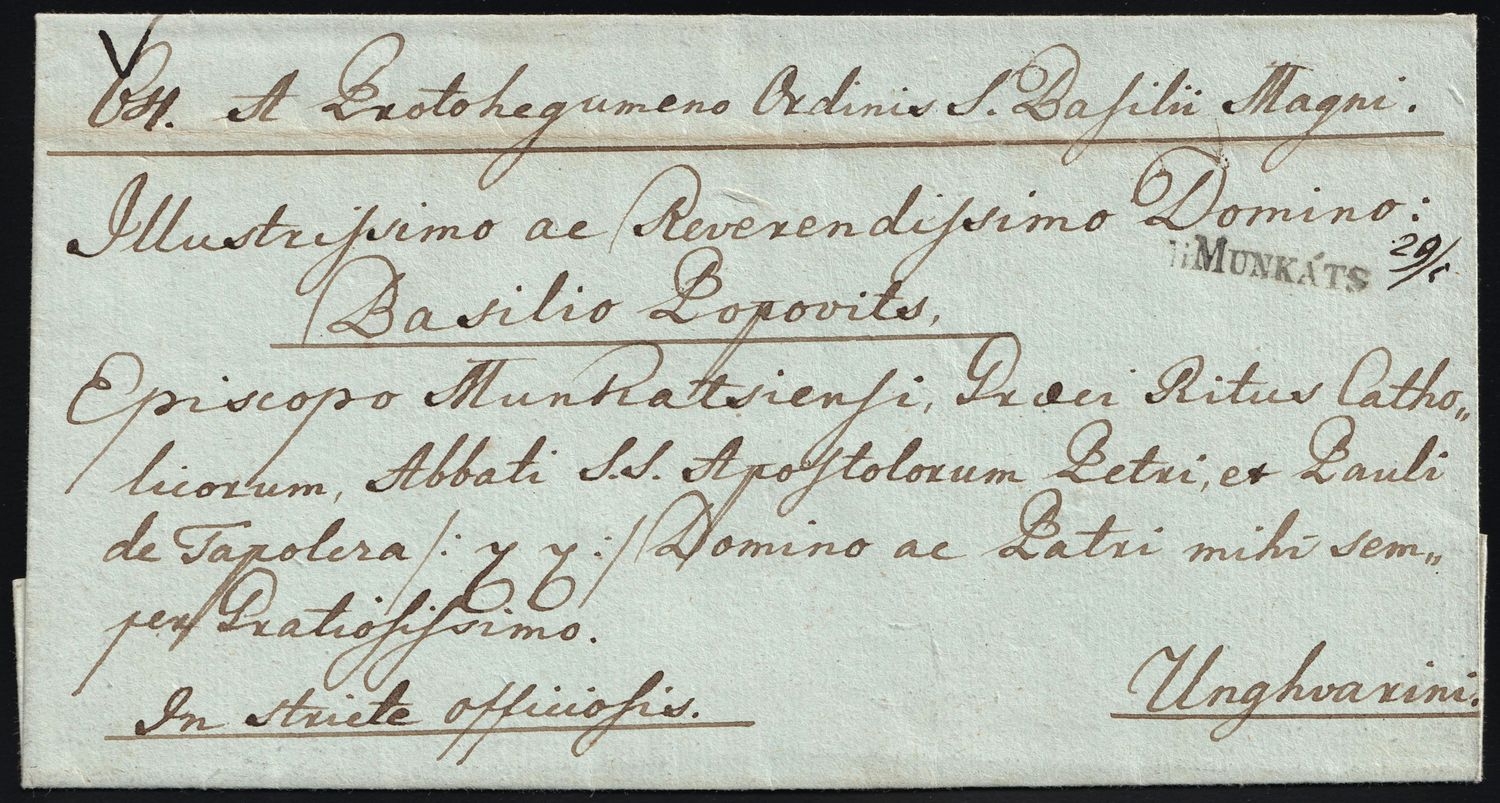 Ex off. A Protohegumeno Ordinis S. Basilii Magni.
Illustrissimo ac Reverendissimo Domino:
MUNKÁTS
29/5
Basilio Popovits,
Episcopo Munkatsiensi, Græci Ritus Catho„
licorum, Abbati S.S. Apostolorum Petri, et Pauli
de Tapolcza /: y y :/ Domino ac Patri mihi sem„
per Gratiosissimo.
In stricte officiosis.
Unghvarini.